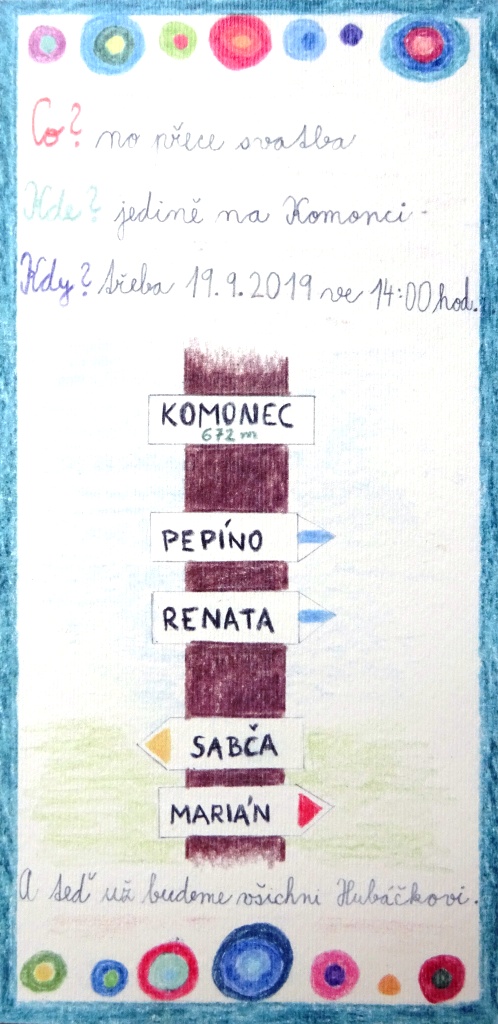 Co? no přece svatba
Kde? jedině na Komonci-
Kdy? třeba 19.9.2019 ve 14:00 hod.
KOMONEC
672 m
PEPÍNO
RENATA
SABČA
MARIÁN
A teď už budeme všichni Hubáčkovi.